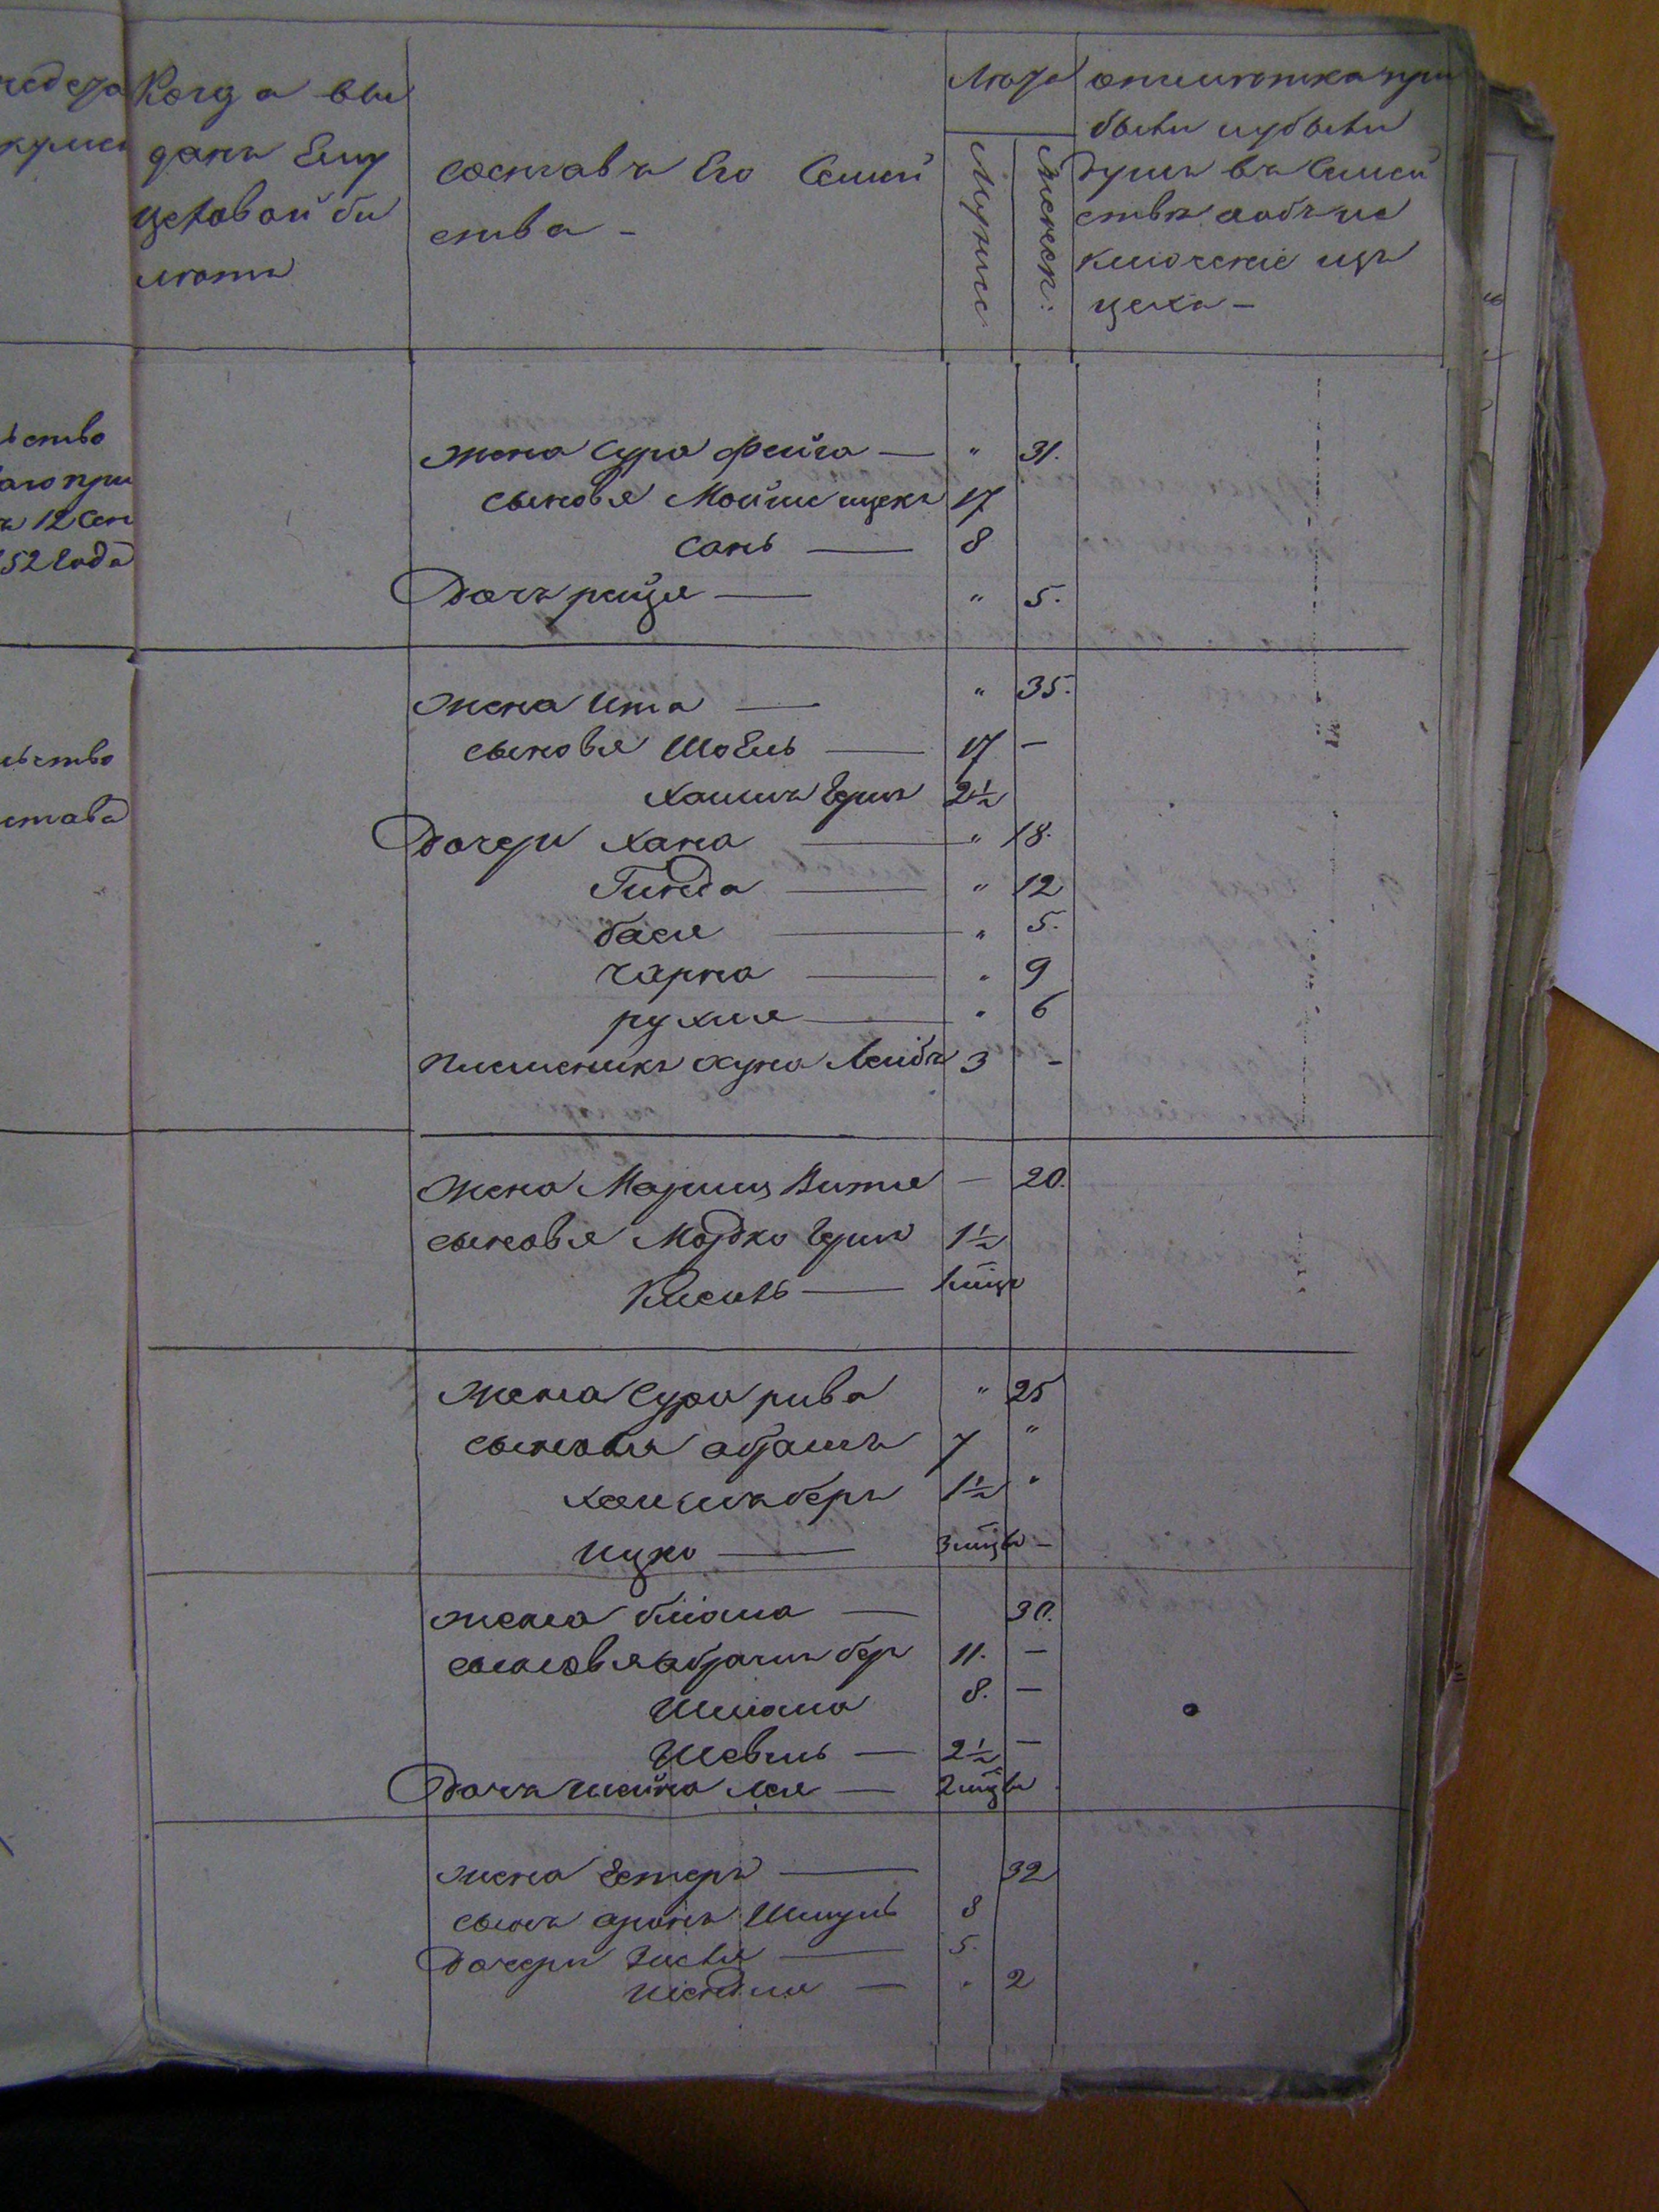 Когда вы
данъ Ему
цеховой би
летъ
составъ Его Семей
ства -
Лета
Мужис
Женск:
отметка при
были и убыли
душъ въ Семей
стве аобъ ис
ключеніе изъ
цеха -
ьство
12 Сен
52 Года
Жена Сура Фейга — " 31.
сыновья Мойше ицекъ 17
Сань — 8
Дочь рейзя — " 5.
ьство
става
Жена Ита — " 35.
сыновья Шоель — 17 —
Хаимъ Гершъ 2½
Дочери Хана — " 18.
Гинда — " 12
бася — " 5.
чарна — " 9
рухля — " 6
племеникъ Хуна Лейбъ 3 -
Жена Витля — 20.
сыновья Мордко Гершъ 1½
Кисель —
Жена Сура рива " 25
сыновья абрамъ 7 "
Хаимъ беръ 1½ "
ицко — 3 мцы -
Жена блюма — 30.
сыновья абрамъ бер 11. —
Шлиома 8. —
Шевель — 2½ —
Дочь шейна лея — 2 мцы
жена Естеръ — 32
сынъ аронъ Шмуль 8
Дочери Зисля — 5.
— " 2